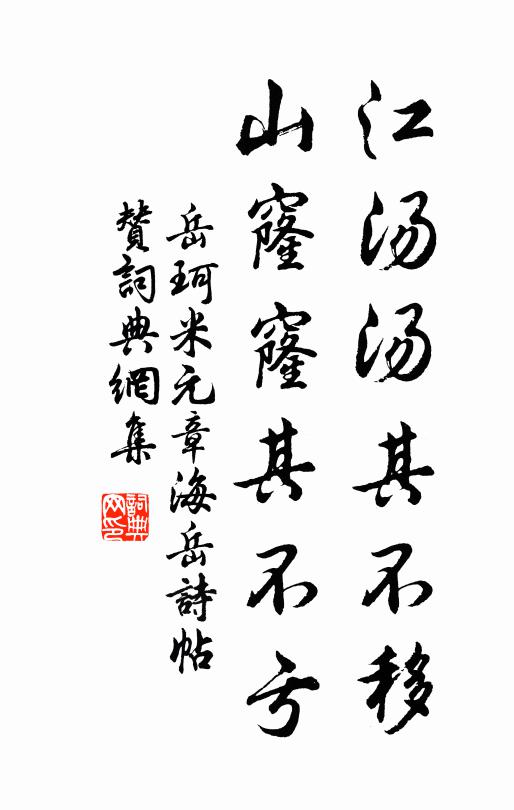 江汤汤其不移
山窿窿其不亏
岳珂米元章海岳詩帖
贊詞典網集
詞典网印